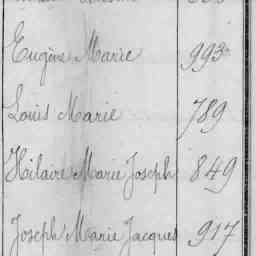 Eugène Marie 993
Louis Marie 789
Hilaire Marie Joseph 849
Joseph Marie Jacques 917